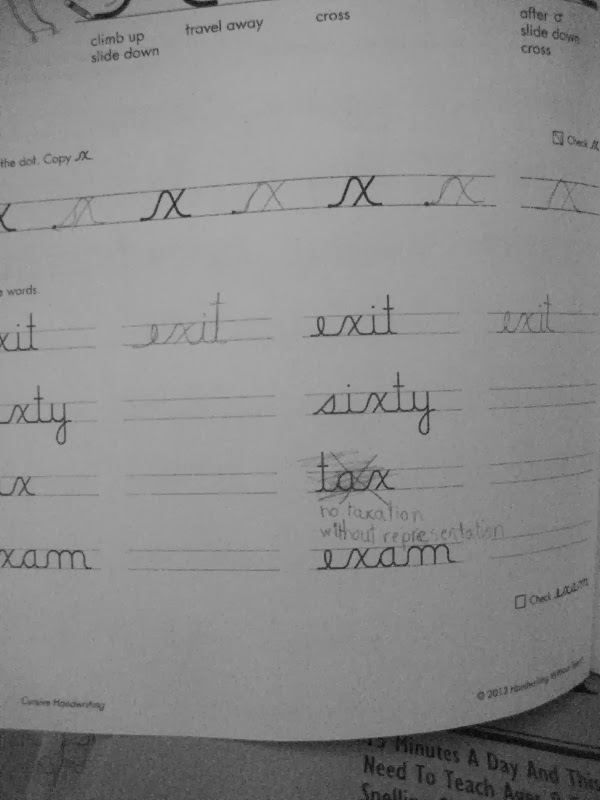 climb up travel away cross after
slide down slide down
cross
the dot. Copy x Check
x x x x x x x x
words.
xit exit exit exit
xty sixty
x tax
no taxation
without representation
xam exam
Check exam
Cursive Handwriting © 2013 Handwriting Without Tears
15 Minutes A Day And This
Need To Teach Ages
Spelling